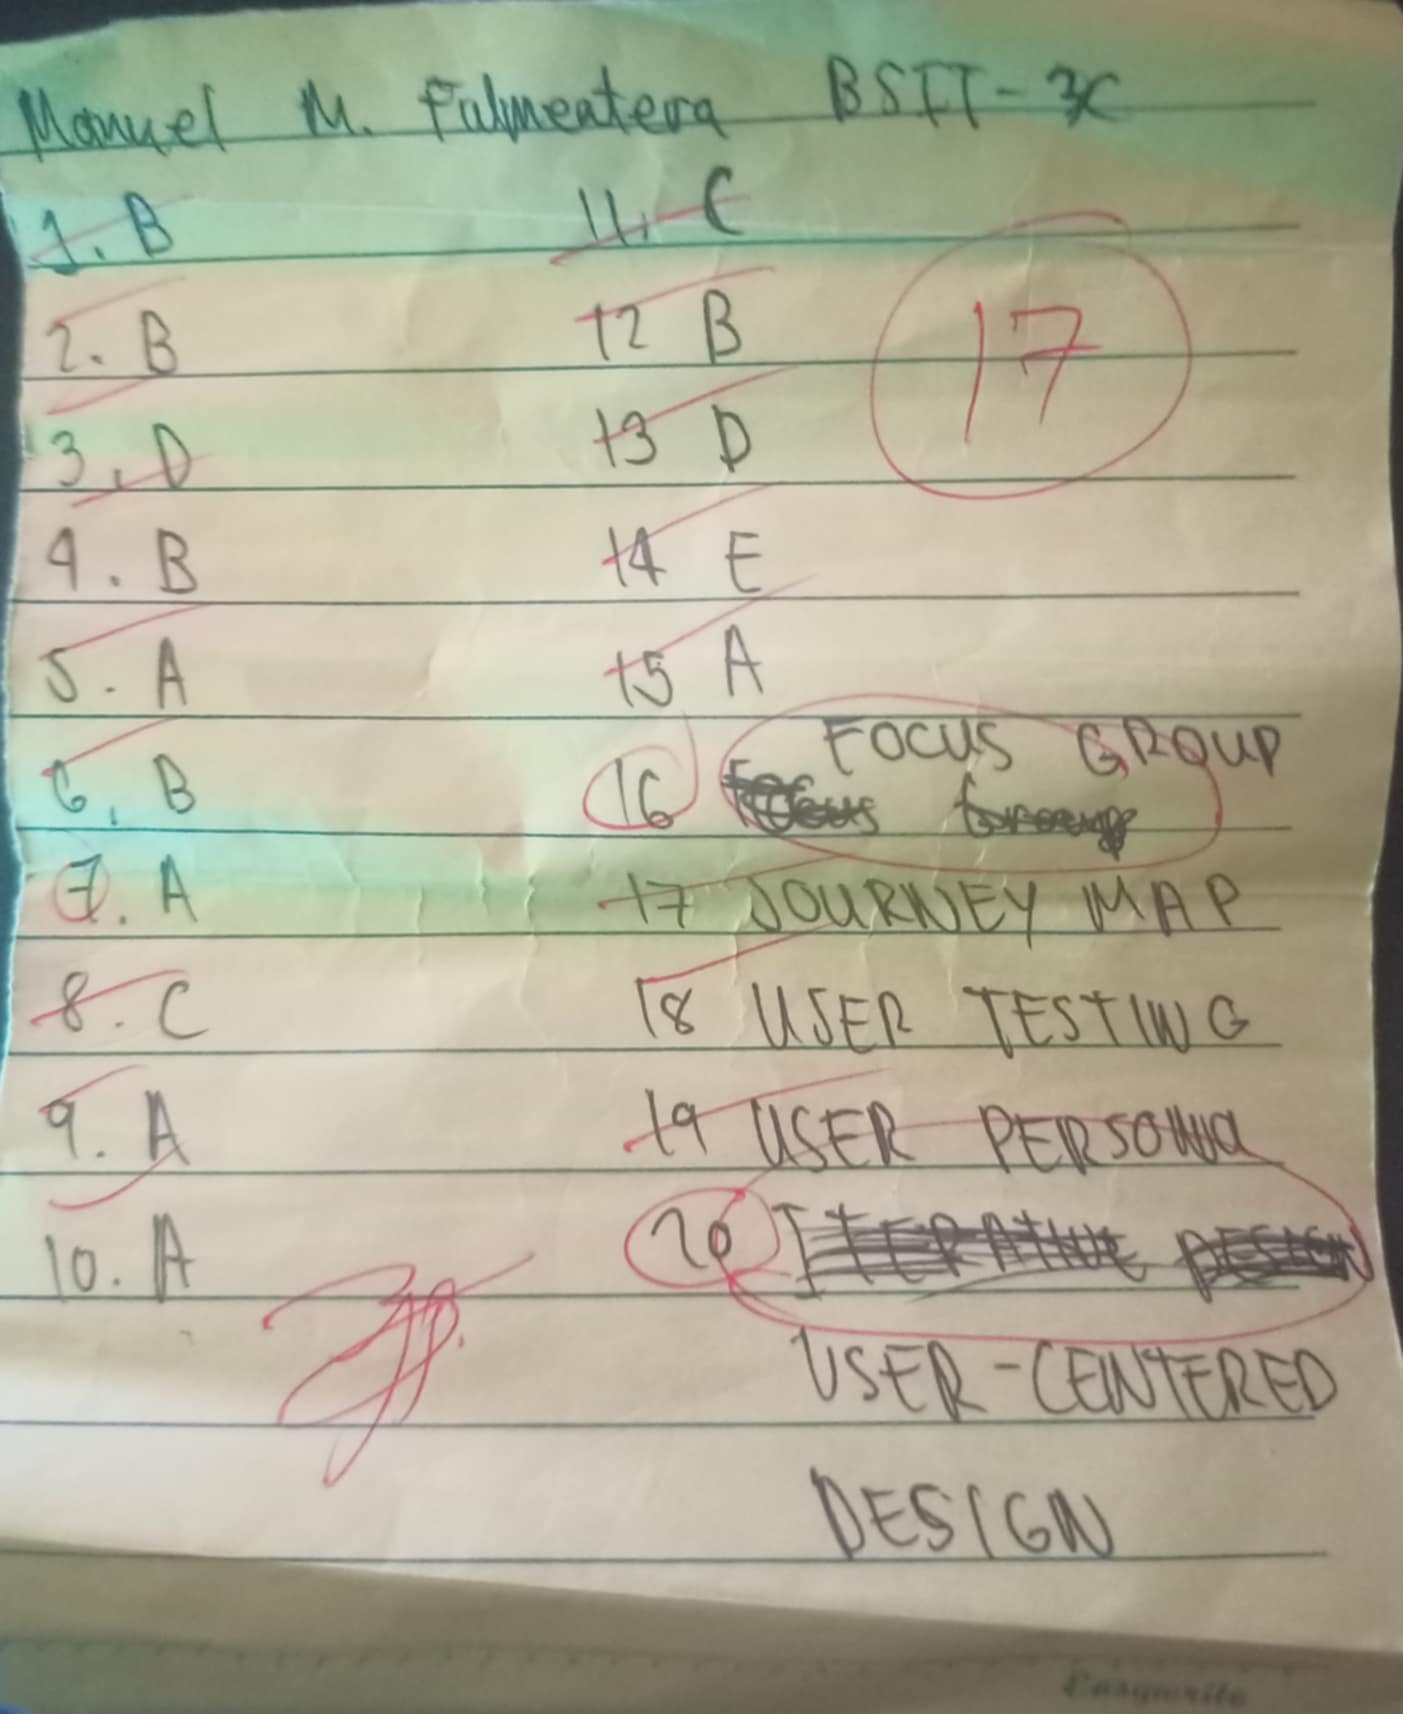 Manuel M. Falmeatera BSIT-3C
1. B
2. B
3. D
4. B
5. A
6. B
7. A
8. C
9. A
10. A
11. C
12 B
13 D
14 E
15 A
16 FOCUS GROUP
Focus Group
17 JOURNEY MAP
18 USER TESTING
19 USER PERSONA
20 ITERATIVE DESIGN
USER-CENTERED
DESIGN
17